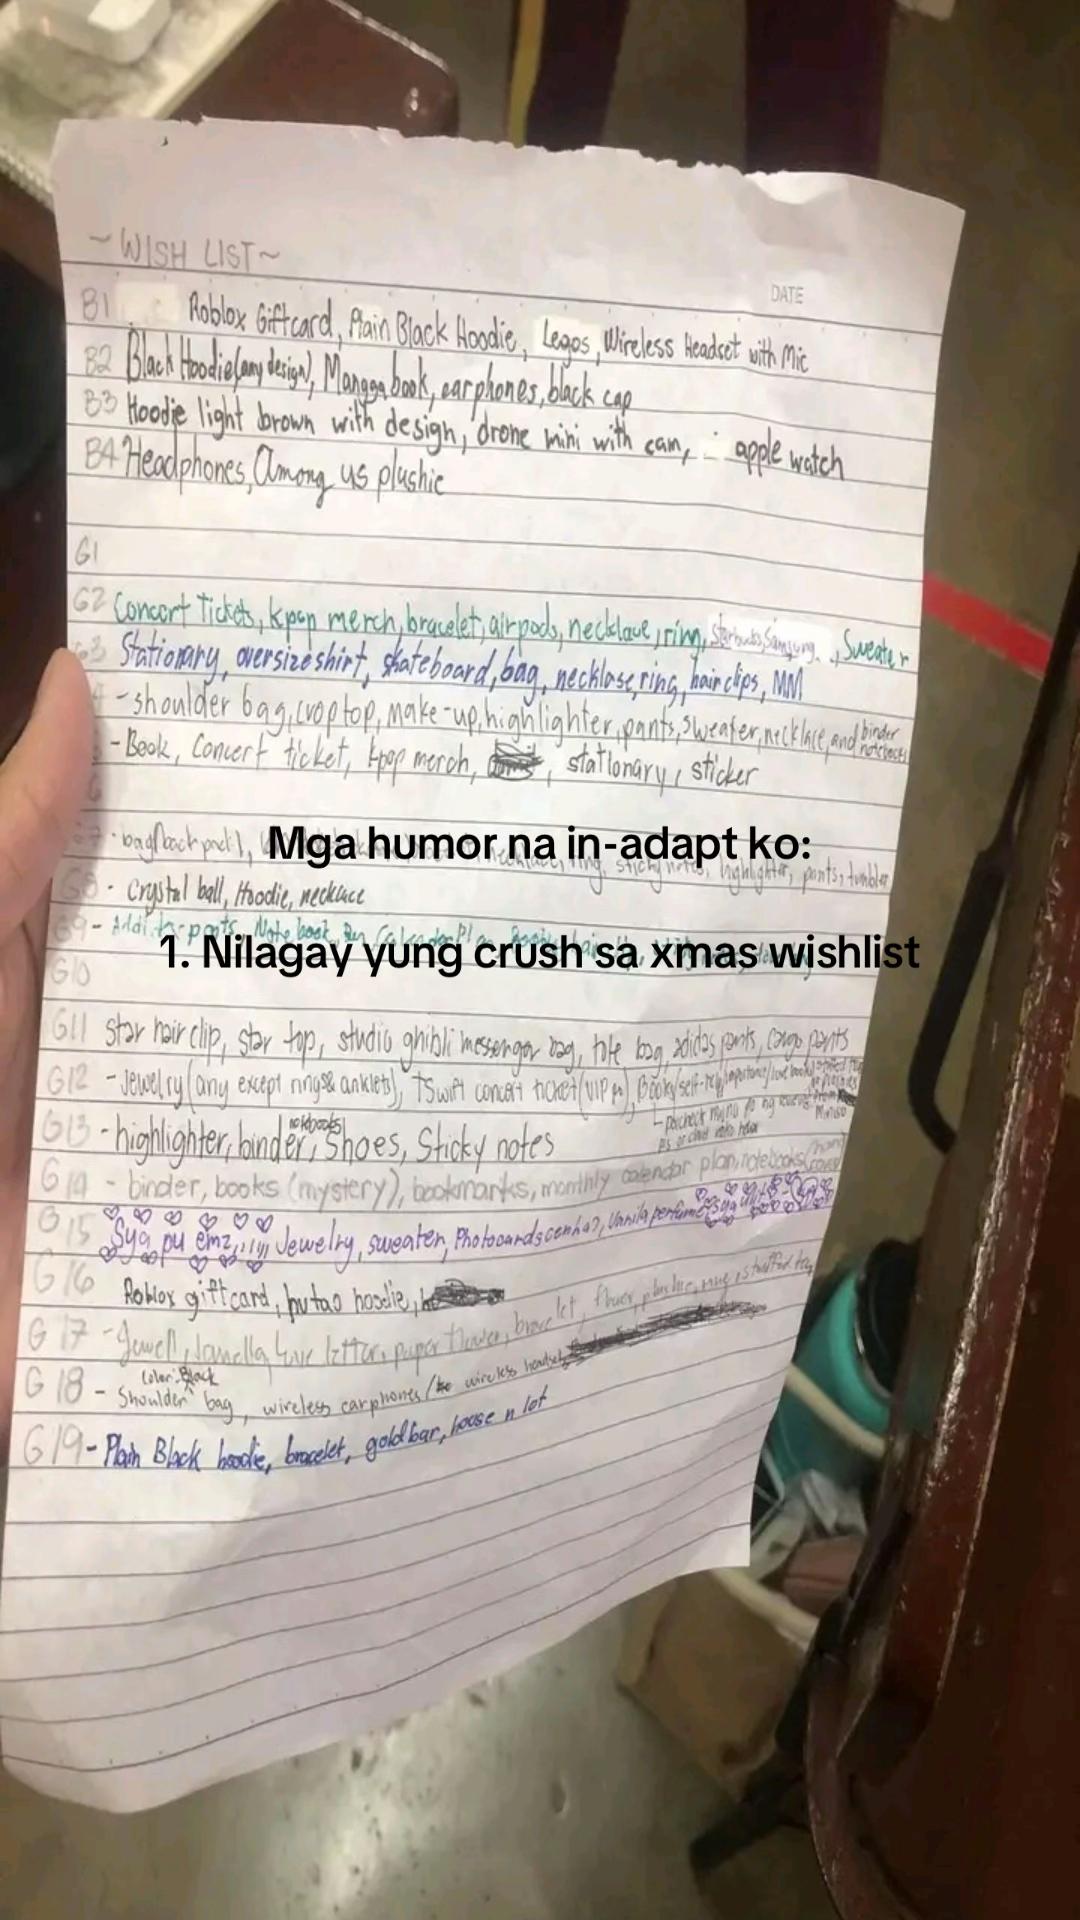 ~WISH LIST~
DATE
B1 Roblox Giftcard, Plain Black Hoodie, Legos, Wireless Headset with Mic
B2 Black Hoodie(any design), Mangga book, earphones, black cap
B3 Hoodie light brown with design, drone mini with cam, apple watch
B4 Headphones, Among us plushie
G1
G2 Concert Tickets, kpop merch, bracelet, airpods, necklace, ring, Starbucks, Samsung, Sweater
G3 Stationary, oversize shirt, skateboard, bag, necklase, ring, hair clips, MM
- shoulder bag, crop top, make-up, highlighter, pants, sweater, necklace, and binder notebooks
- Book, Concert ticket, kpop merch, , stationary, sticker
Mga humor na in-adapt ko:
bag(back pack), ring, sticky notes, highlighter, pants, tumbler
G8 - Crystal ball, Hoodie, necklace
G9 - pants, Note book
1. Nilagay yung crush sa xmas wishlist
G10
G11 star hair clip, star top, studio ghibli messenger bag, tote bag, adidas pants, cargo pants
G12 - Jewelry (any except rings & anklets), TSwift concert ticket (VIP po), Books
G13 - highlighter, binder, notebooks, Shoes, Sticky notes
G14 - binder, books (mystery), bookmarks, monthly calendar plan, notebooks
G15 Sya pu emz,,!!!! Jewelry, sweater, Photocards enha?, Vanila perfume
G16 Roblox gift card, hutao hoodie,
G17 - love letter, paper flower, bracelet, plushie,
G18 - Shoulder bag, color: Black wireless earphones/ wireless headset
G19 - Plain Black hoodie, bracelet, gold bar, house n lot